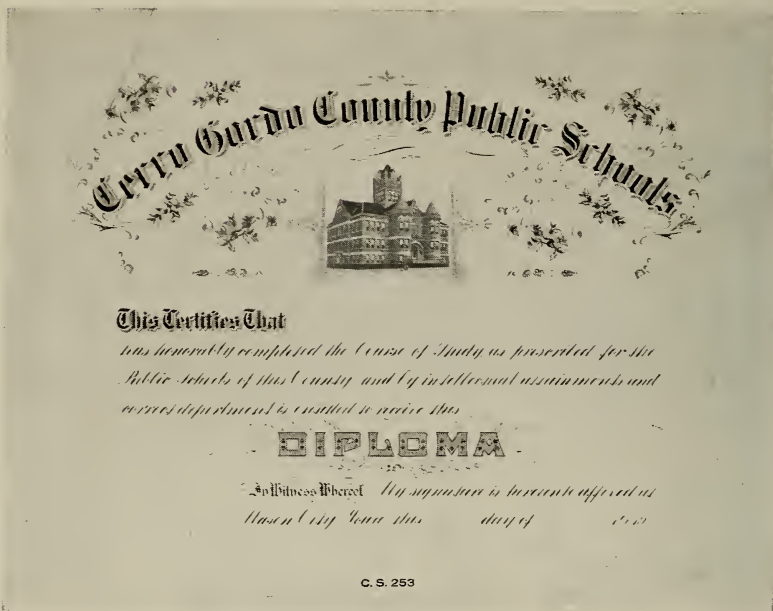 Cerro Gordo County Public Schools
This Certifies That
has honorably completed the Course of Study as prescribed for the
Public Schools of this County and by intellectual attainments and
correct deportment is entitled to receive this
DIPLOMA
In Witness Whereof My signature is hereunto affixed at
Mason City Iowa this day of
C. S. 253